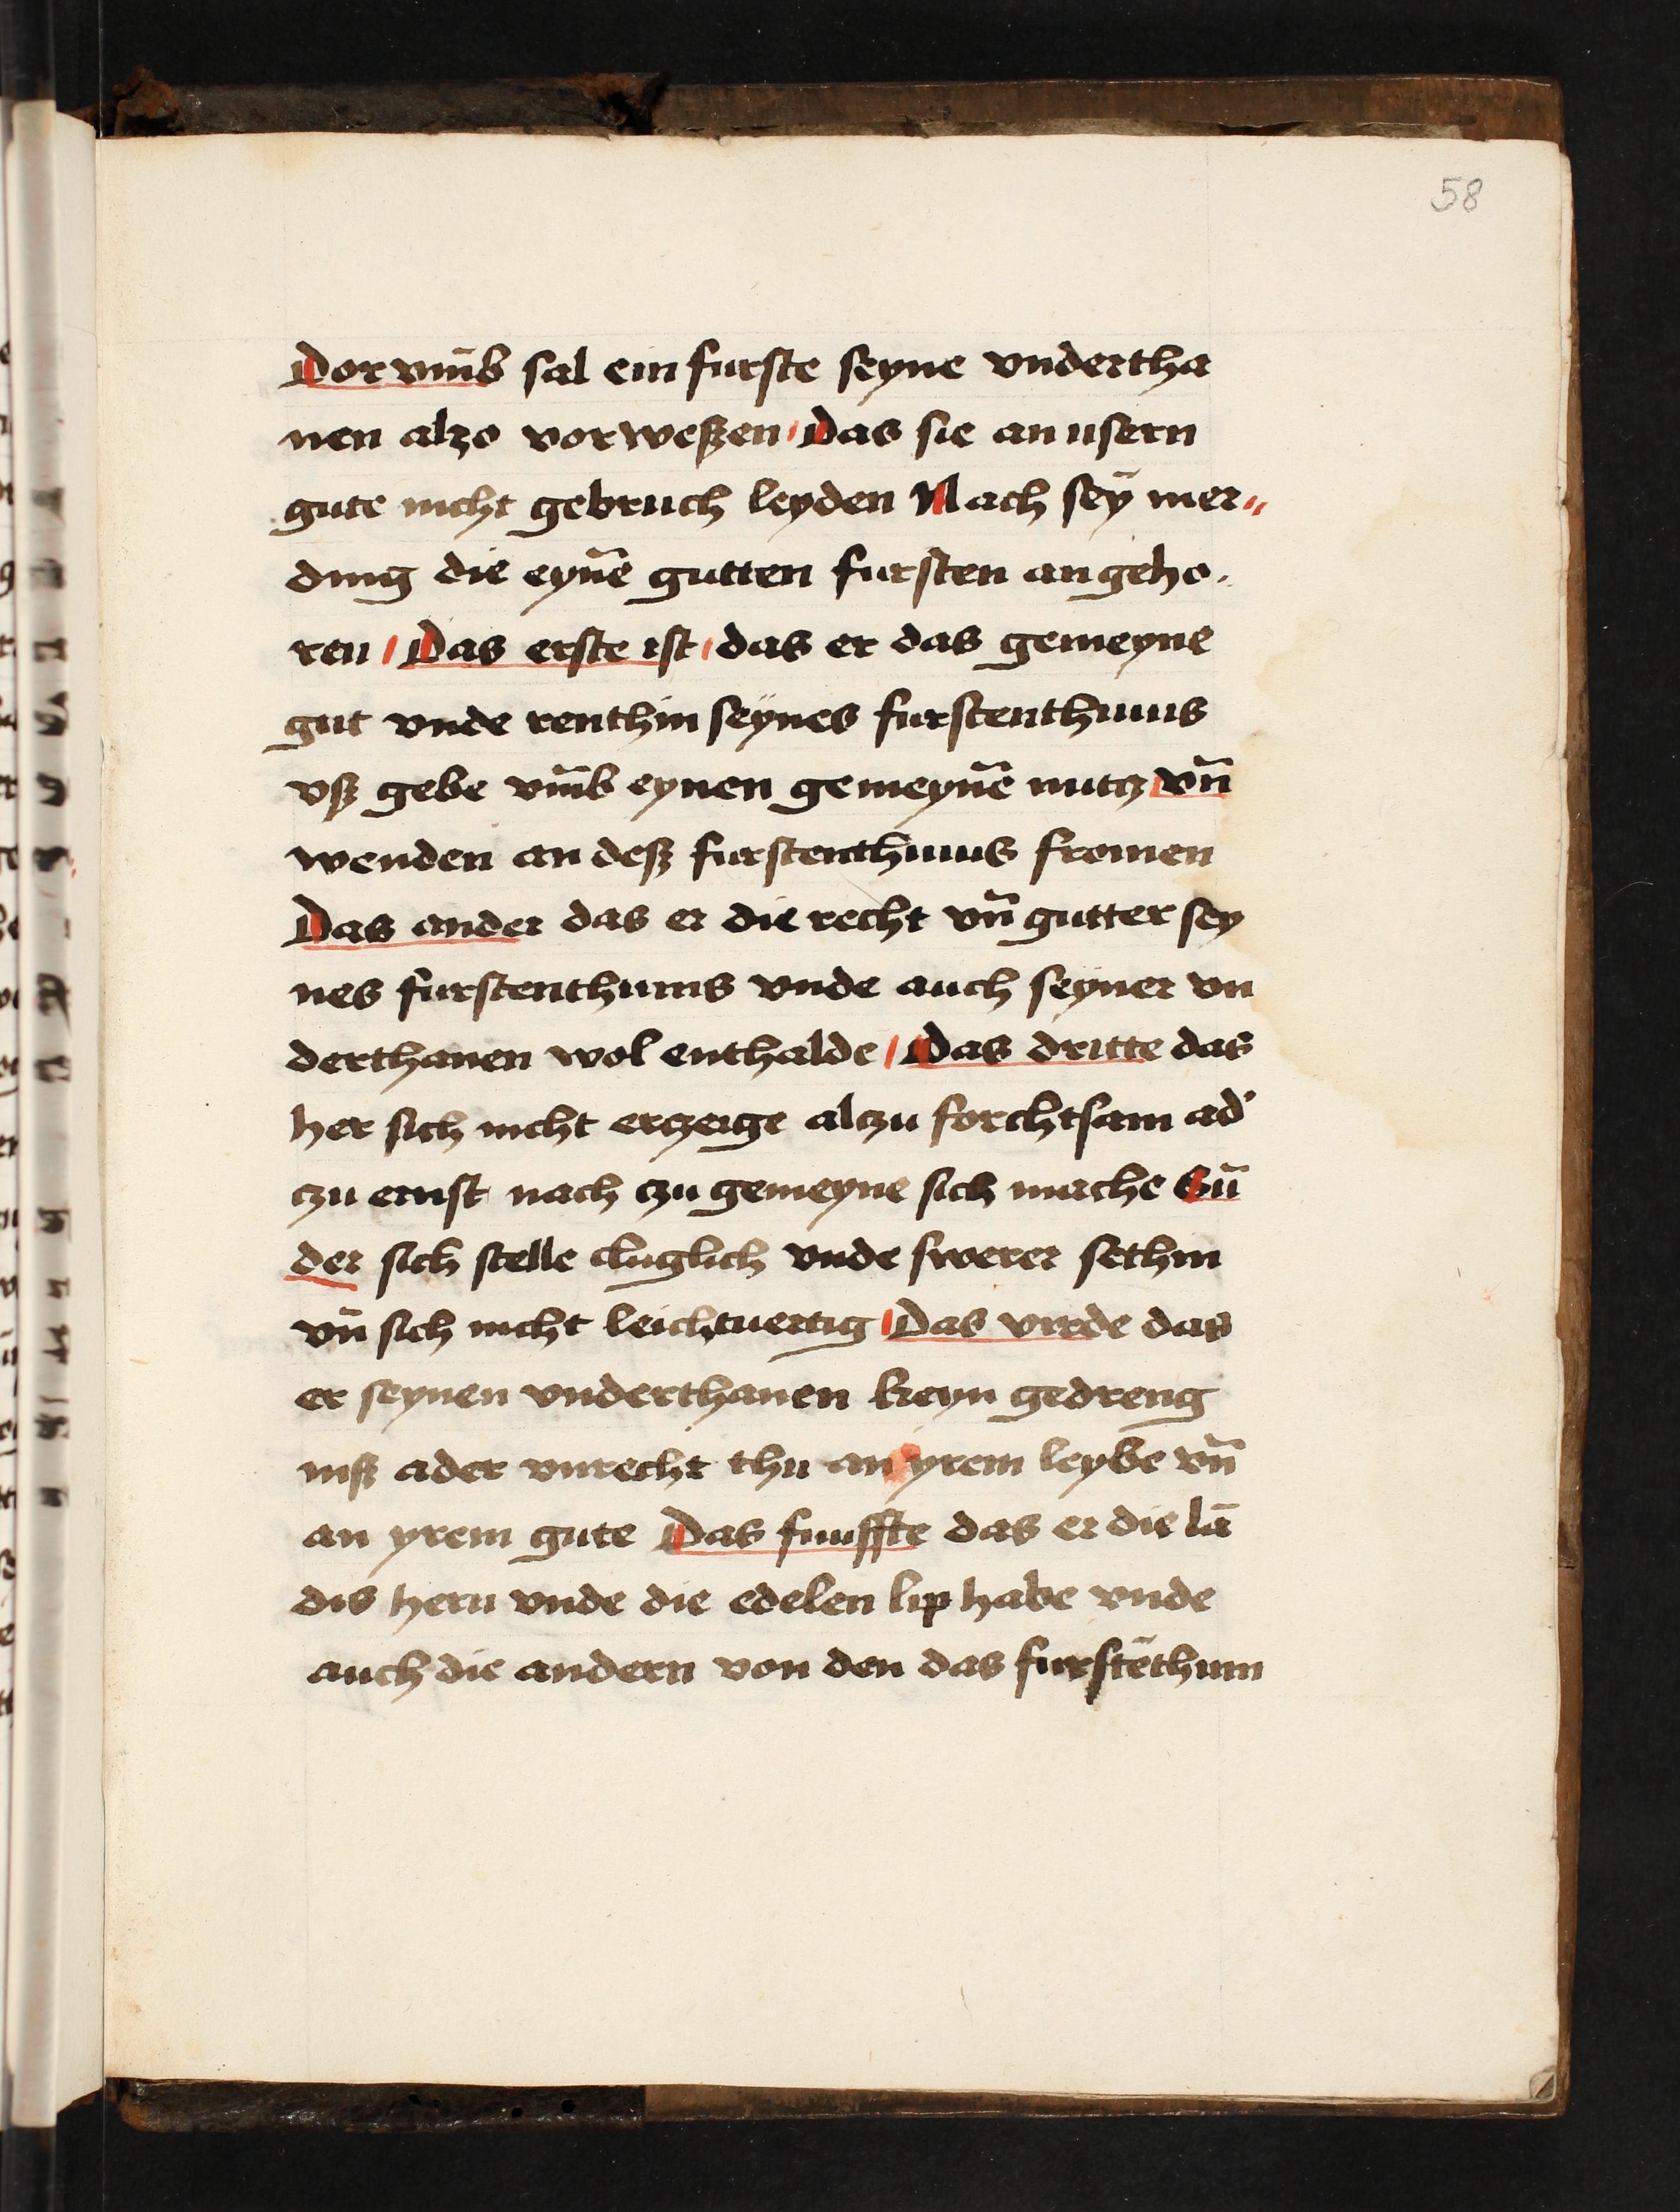 58
Dor vm̄b sal ein furste seyne vndertha
nen alzo vorweßen das sie an usern
gute nicht gebruch leyden Nach sey̅ mer
dung die eyne̅ gutten fursten an geho
ren Das erste ist das er das gemeyne
gut vnde renthin seynes furstenthums
vß gebe vm̄b eynen gemeyne̅ nutcz vn̅
wenden an deß furstenthums fromen
Das ander das er die recht vn̅ gutter sey
nes furstenthums vnde auch seyner vn
derthanen wol enthalde Das dritte das
her sich nicht erczeige alczu forchtsam ad'
czu ernst nach czu gemeyne sich mache Su̅
der sich stelle cluglich vnde swerer sethin
vn̅ sich nicht leichtuertig Das virde das
er seynen vnderthanen keyn gedreng
niß ader vnrecht thu an yrem leybe vn̅
an yrem gute Das funffte das er die la̅
dis hern vnde die edelen lip habe vnde
auch die andern von den das furste̅thum